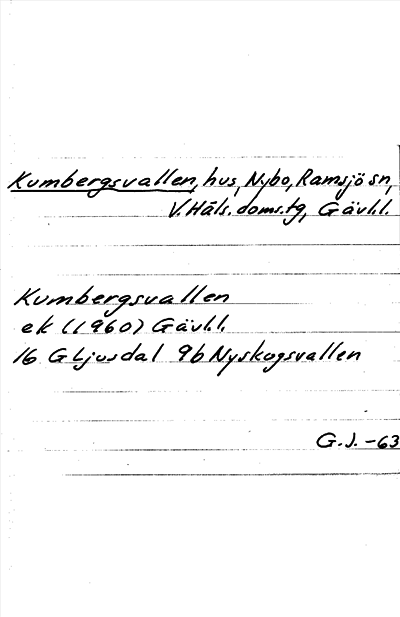 Kumbergsvallen, hus, Nybo, Ramsjö sn,
V. Häls. doms.tg, Gävl.l.
Kumbergsvallen
ek (1960) Gävl.l.
16 G Ljusdal 9b Nyskogsvallen
G.J. -63